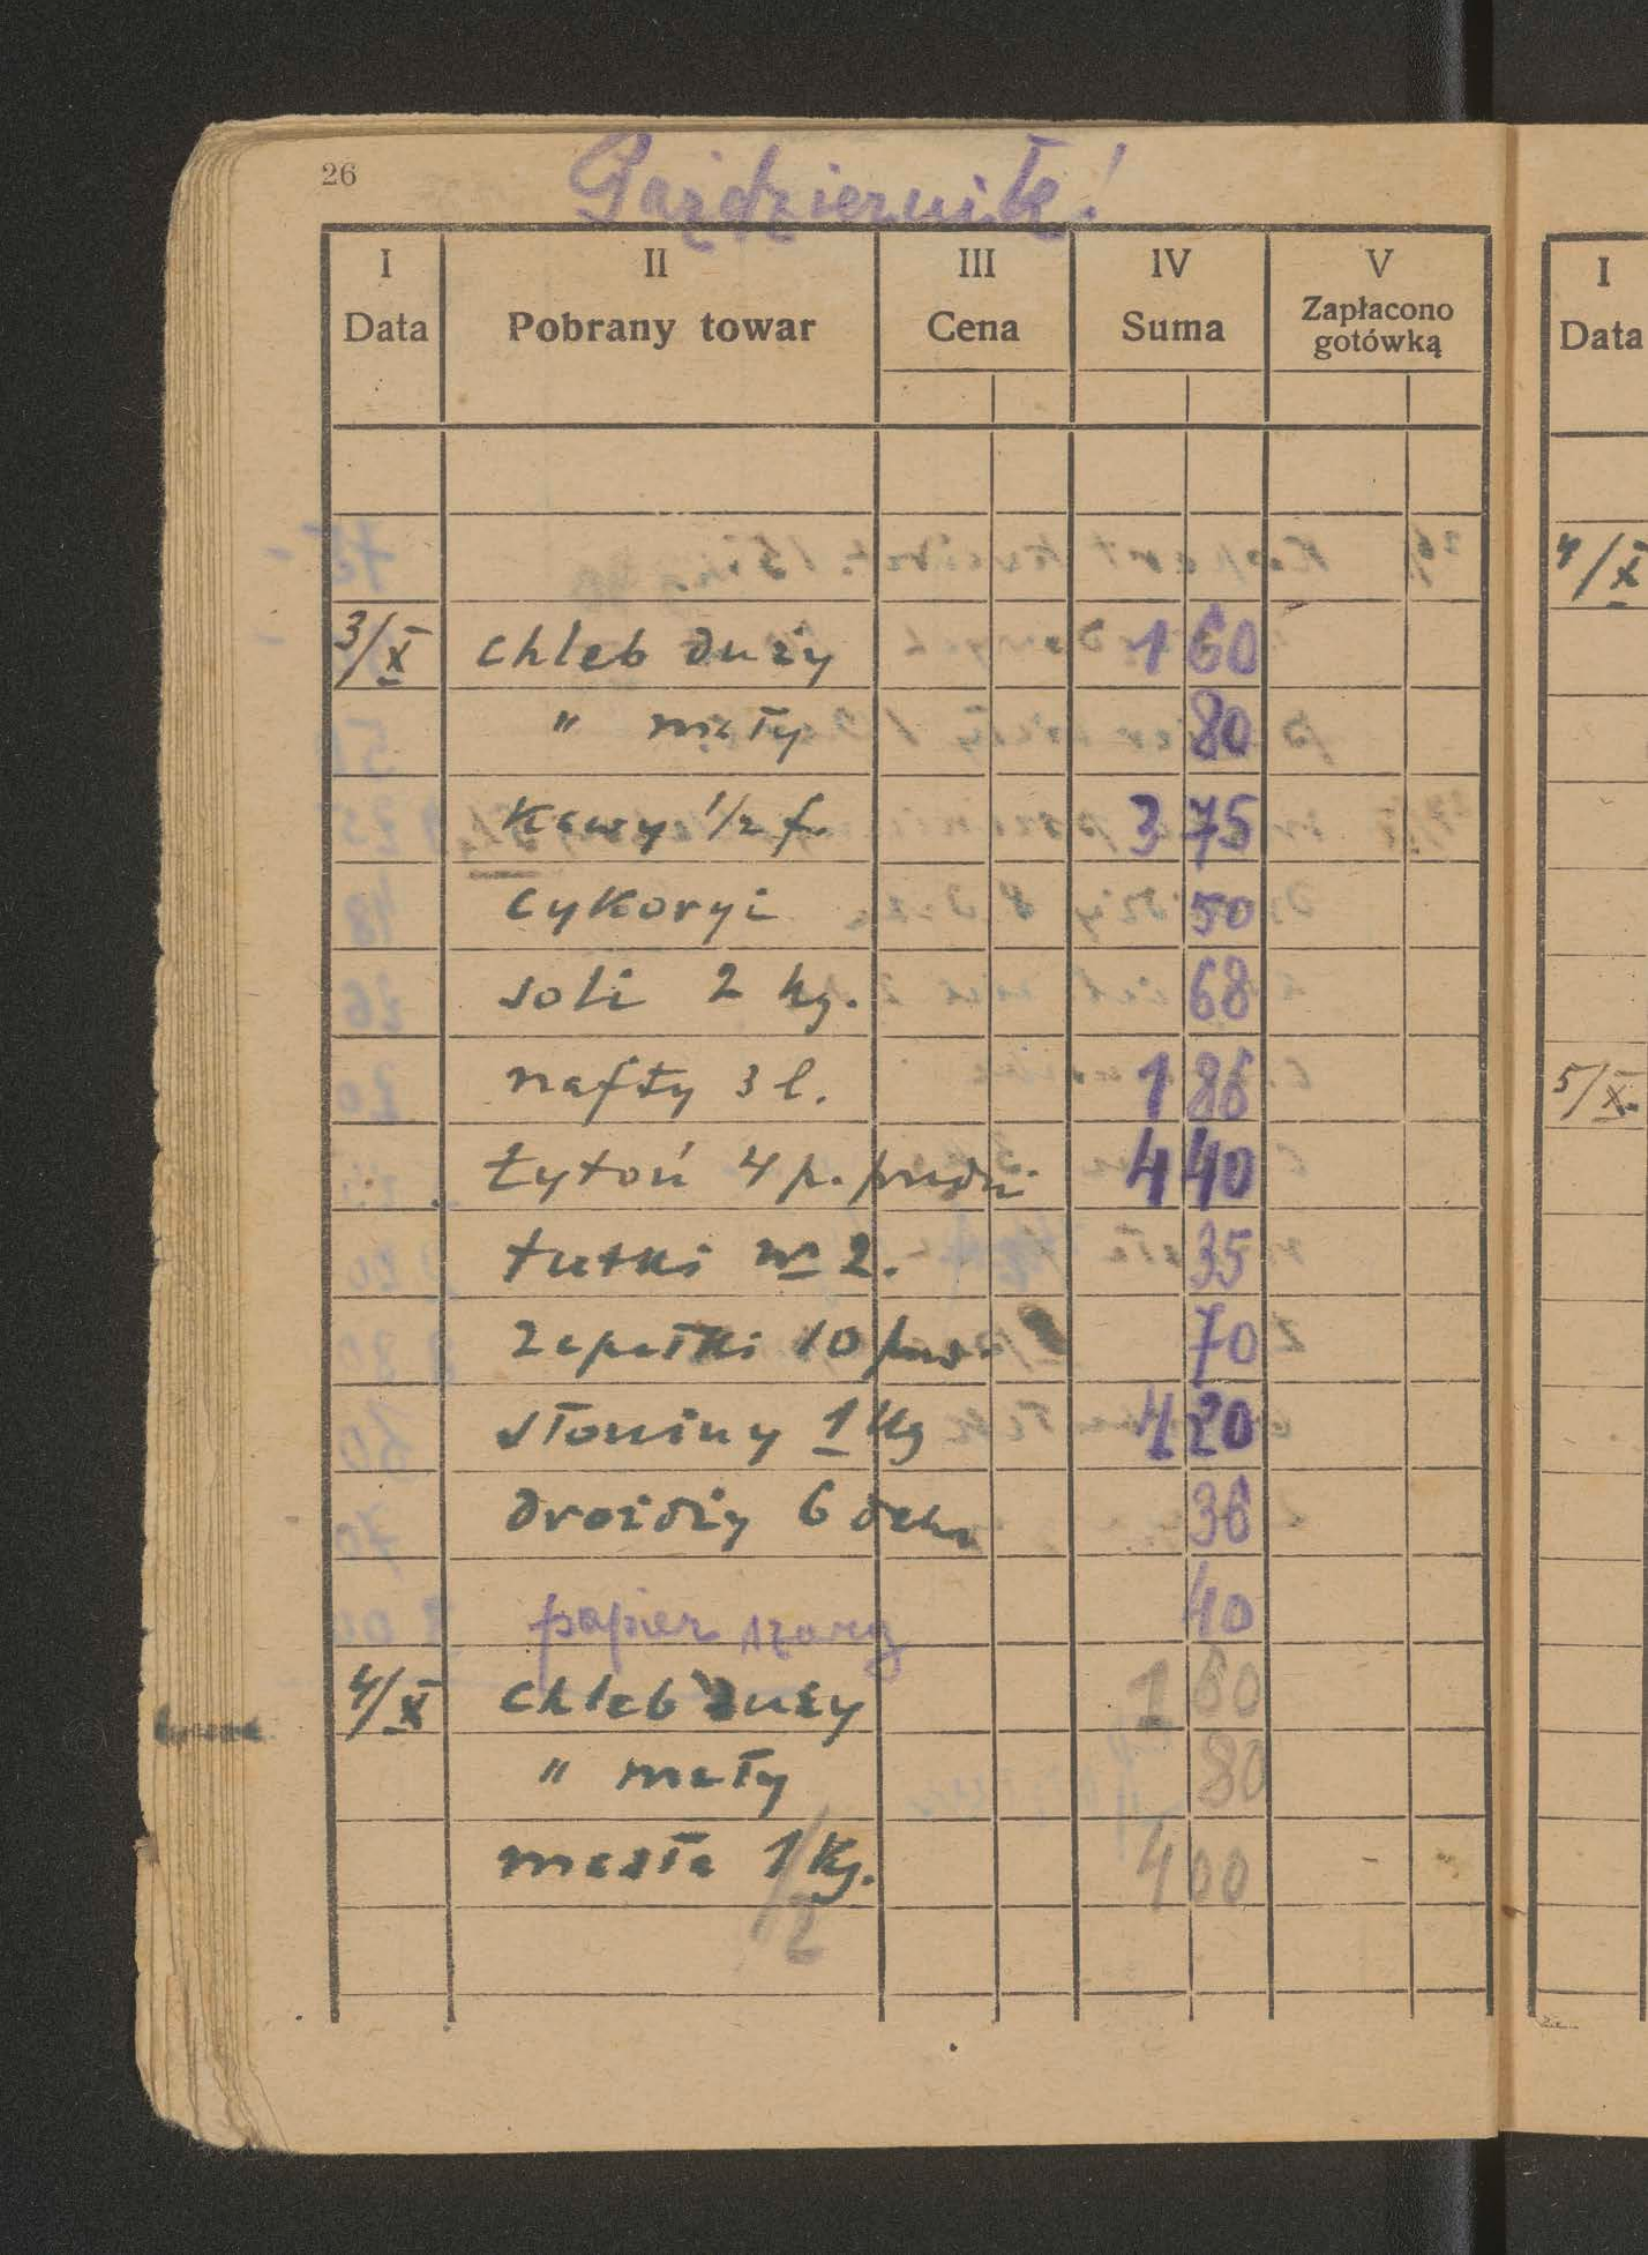 26
Październik!
I II III IV V
Data Pobrany towar Cena Suma Zapłacono gotówką
3/X chleb duży 1 60
" mały 80
Kawy 1/2 f. 3 75
cykoryi 50
soli 2 kg. 68
nafty 3 l. 1 86
tytoń 4 p. 4 40
tutki № 2. 35
zapałki 10 70
słoniny 1 Kg 4 20
drożdży 6 deka 36
papier szary 40
4/X chleb duży 1 60
" mały 80
masła 1/2 Kg. 4 00
I
Data
4/X
5/X.